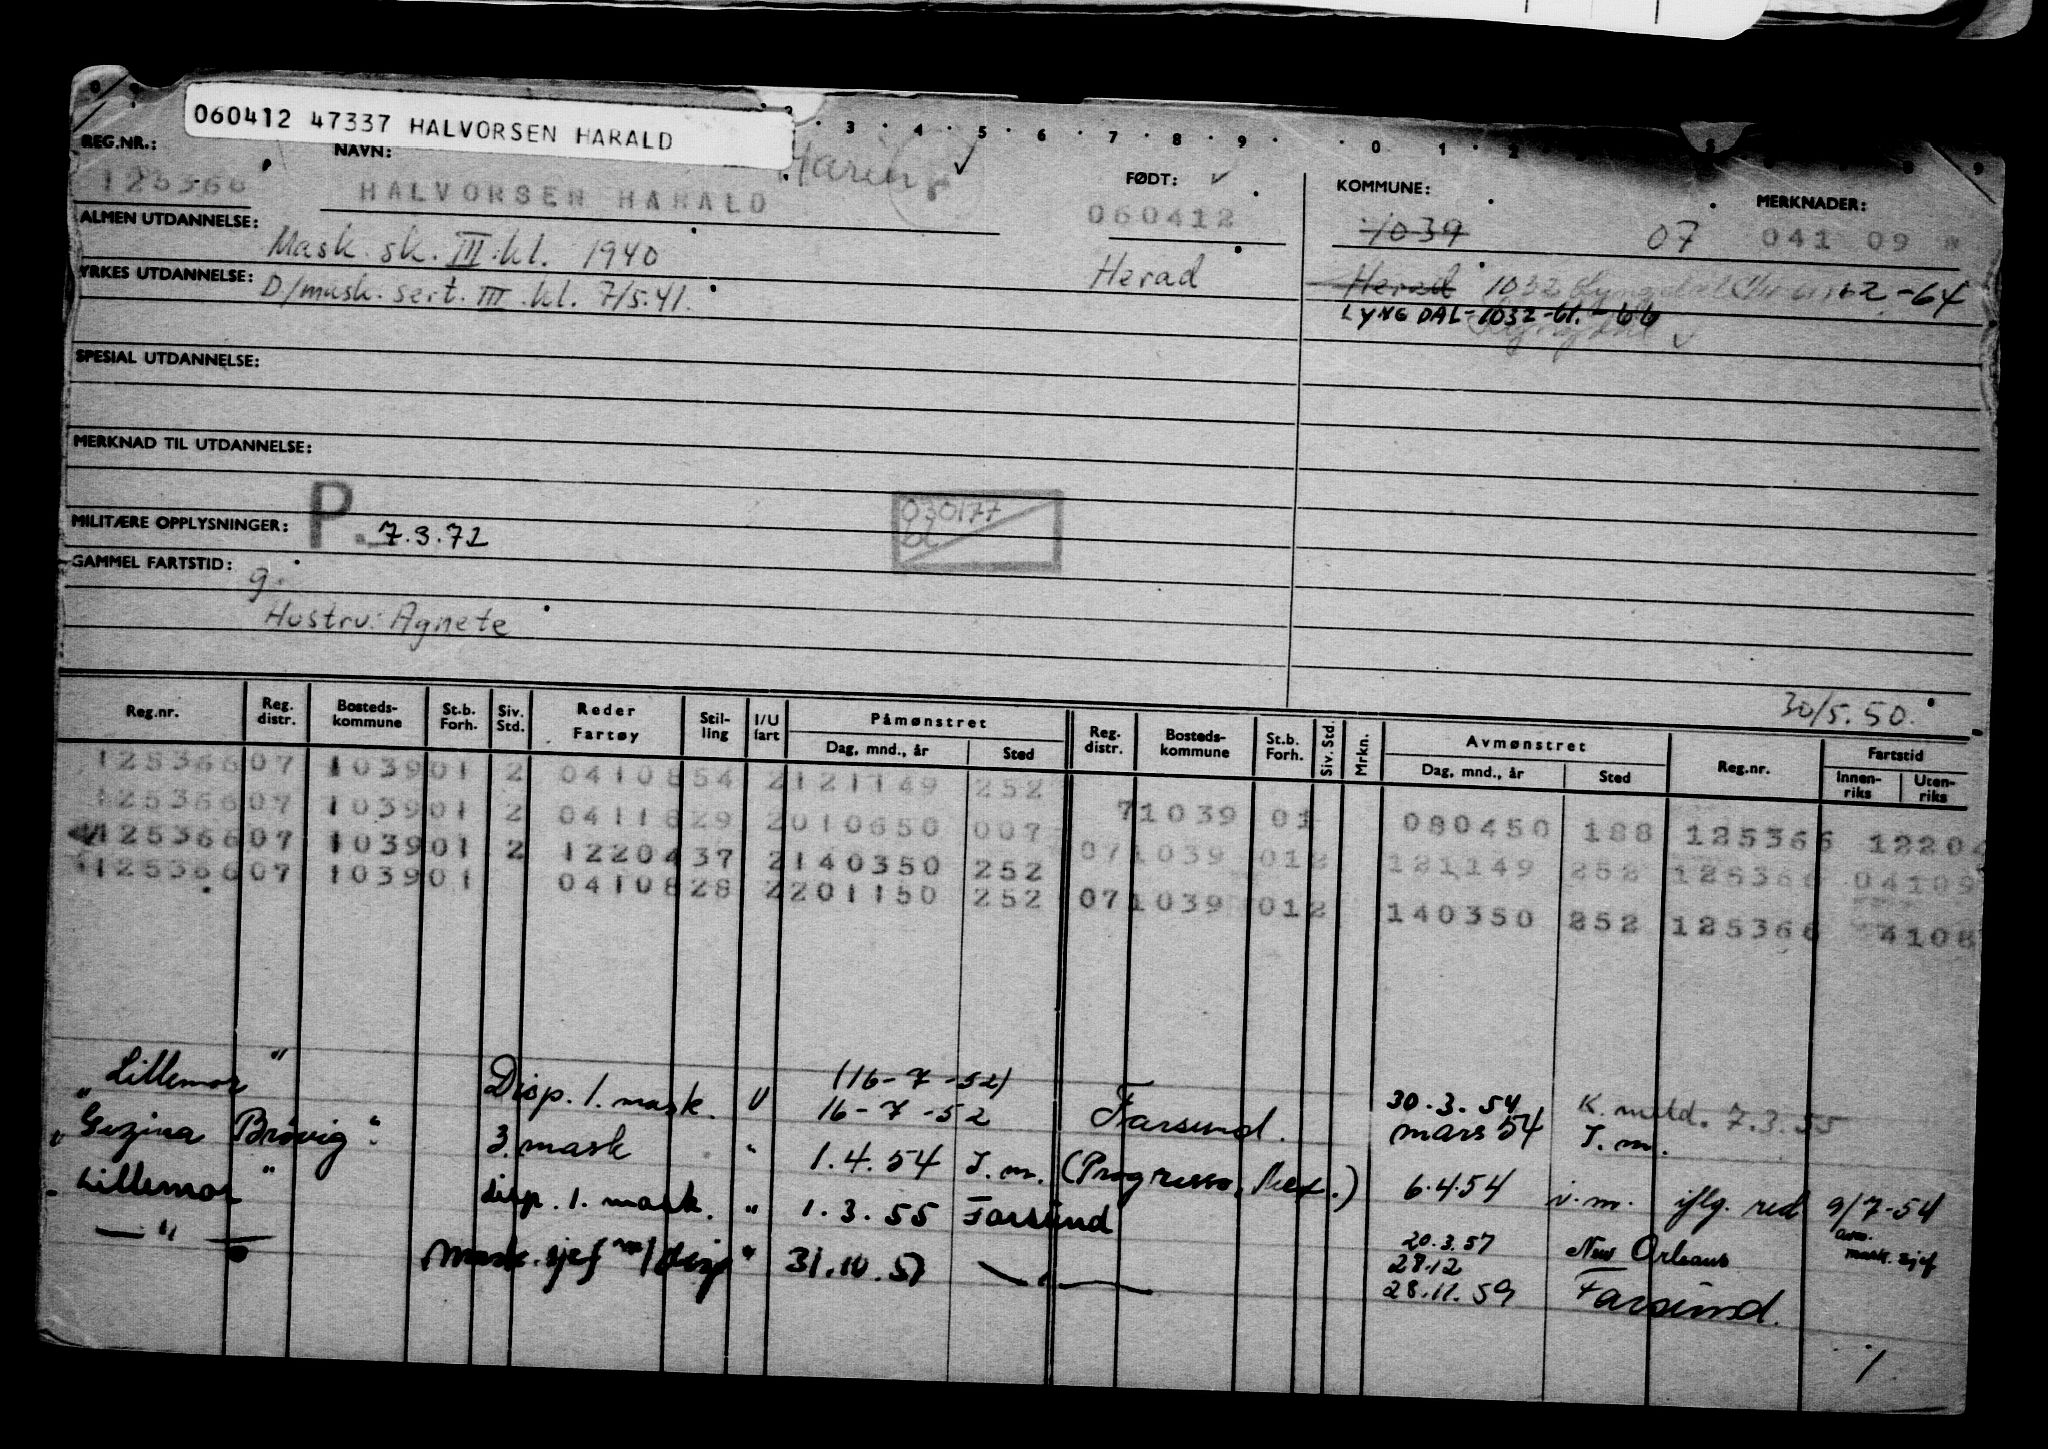 060412 47337 HALVORSEN HARALD
3 4 5 6 7 8 9 0 1 2
REG.NR.: NAVN: FØDT: KOMMUNE: MERKNADER:
125366 HALVORSEN HARALD 060412 1039 07 041 09
ALMEN UTDANNELSE: Mask. sk. III. kl. 1940 Herad Herad 1032 Lyngdal 2-64
YRKES UTDANNELSE: D/mask. sert. III. kl. 7/5.41. LYNGDAL-1032-bl.-66
SPESIAL UTDANNELSE:
MERKNAD TIL UTDANNELSE:
MILITÆRE OPPLYSNINGER: P. 7.3.72 030177
GAMMEL FARTSTID: g.
Hustru: Agnete
30/5.50.
Reg.nr. Reg. distr. Bosteds-kommune St.b. Forh. Siv. Std. Reder Fartøy Stil-ling I/U fart Påmønstret Dag, mnd., år Sted Reg. distr. Bosteds-kommune St.b. Forh. Siv. Std. Mrkn. Avmønstret Dag, mnd., år Sted Reg.nr. Fartstid Innen-riks Uten-riks
125366 07 1039 01 2 0410854 2 121149 252
125366 07 1039 01 2 0411829 2 010650 007 71039 01 080450 188 125366 12204
125366 07 1039 01 2 1220437 2 140350 252 071039 012 121149 252 125366 04109
125366 07 1039 01 0410828 2 201150 252 071039 012 140350 252 125366 4108
"Lillemor" Disp. 1. mask. U (16-7-52) 16-7-52 Farsund. 30.3.54 K. meld. 7.3.55
"Gezina Brøvig" 3. mask " 1.4.54 I.m. (Progresso, Mex.) mars 54 I.m.
"Lillemor" disp. 1. mask. " 1.3.55 Farsund 6.4.54 i.m. iflg. red 9/7-54
— " — Mask. sjef m/disp " 31.10.57 — " — 20.3.57 New Orleans avm. mask. sjef
28.12
28.11.59 Farsund.
1